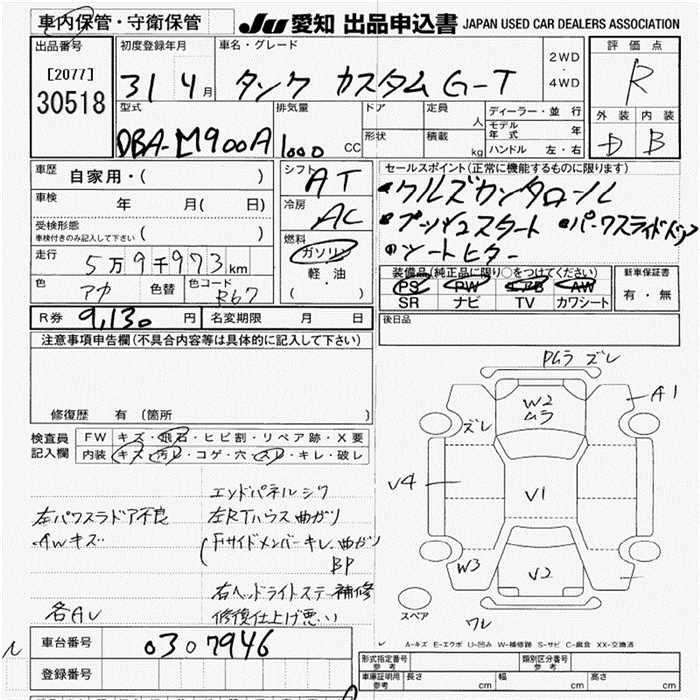 車内保管・守衛保管
JU 愛知 出品申込書 JAPAN USED CAR DEALERS ASSOCIATION
出品番号
[2077]
30518
初度登録年月
31 4 月
車名・グレード
タンク カスタム G-T
2WD
・
4WD
評価点
R
外装 内装
D B
型式
DBA-M900A
排気量
1000 CC
ドア
形状
定員 人
積載 kg
ディーラー・並行
モデル年式 年
ハンドル 左・右
車歴 自家用・( )
車検 年 月( 日)
受検形態
車検付きのみ記入して下さい ( )
走行
5万9千973km
色 アカ 色替 色コード R67
シフト AT
冷房 AC
燃料
ガソリン
軽・油
( ・ )
セールスポイント(正常に機能するものに限ります)
・クルズコンタロール
・プッシュスタート ・パークスライドドア
・シートヒター
装備品(純正品に限り○をつけてください)
PS PW エアB AW
SR ナビ TV カワシート
新車保証書
有・無
R券 9,130 円 名変期限 月 日
後日品
注意事項申告欄(不具合内容等は具体的に記入して下さい)
修復歴 有(箇所 )
検査員記入欄
FW キズ・飛石・ヒビ割・リペア跡・X要
内装 キズ・汚レ・コゲ・穴・スレ・キレ・破レ
左パワスラドア不良
AWキズ
各AU
エンドパネルシワ
左RTハウス曲ガリ
Fサイドメンバーキレ、曲ガリ
BP
右ヘッドライトステー補修
修復仕上げ悪い
Dムラ ズレ
W2
ムラ
A1
ズレ
V4
V1
W3
V2
ワレ
スペア
A-キズ E-エクボ U-凹み W-補修跡 S-サビ C-腐食 XX-交換済
車台番号 0307946
登録番号
型式指定番号 参考
類別区分番号 参考
車庫証明用 参考 長さ cm 幅 cm 高さ cm